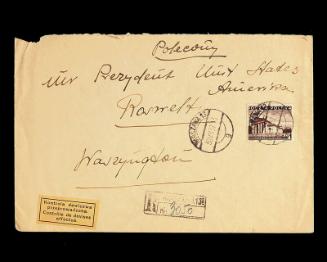 Polecony
Mr Prezydent Unit States
Amerika
Roswelt
POCZTA POLSKA
Waszyngton
Kontrola dewizowa
przeprowadzona.
Contrôle de devises
effectué.
Nr. 3050